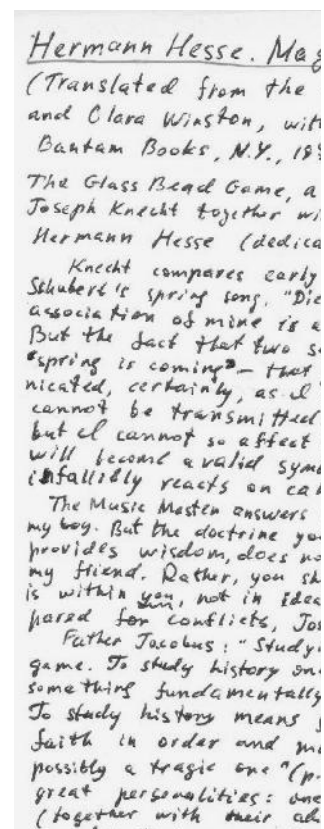 Hermann Hesse. Mag
(Translated from the
and Clara Winston, with
Bantam Books, N.Y., 19
The Glass Bead Game, a
Joseph Knecht together wi
Hermann Hesse (dedica
Knecht compares early
Schubert's spring song, "Die
association of mine is a
But the fact that two s
"spring is coming" – that
nicated, certainly, as I
cannot be transmitted
but I cannot so affect
will become a valid symb
infallibly reacts on ca
The Music Master answers
my boy. But the doctrine you
provides wisdom, does no
my friend. Rather, you sh
is within you, not in idea
pared for conflicts, Jos
Father Jacobus: "Study
game. To study history one
something fundamentally
To study history means s
faith in order and me
possibly a tragic one" (p.
great personalities: one
(together with their ab